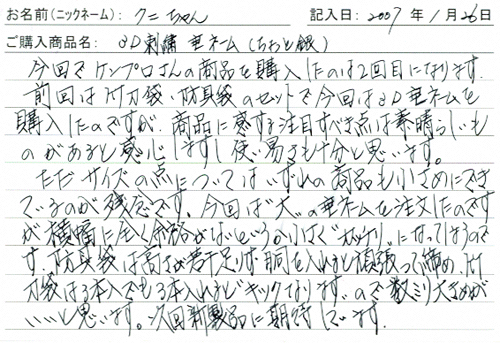 お名前(ニックネーム): クニちゃん 記入日: 2007 年 1 月 26 日
ご購入商品名: 3D刺繍 垂ネーム(ちおと銀)
今回でケンプロさんの商品を購入したのは2回目になります.
前回は竹刀袋、防具袋のセットで今回は3D垂ネームを
購入したのですが、商品に感する注目すべき点は素晴らしいも
のがあると感心しますし使い易さも十分と思います。
ただサイズの点についてはいずれの商品も小さめにでき
ているのが残念です。今回は"大"の垂ネームを注文したのです
が横幅に全く余裕がないというか小さく"カッチリ"になってしまうので
す. 防具袋は高さが若干足りず胴を入れると頑張って締め、竹
刀袋は3本入でも3本入れると"キツクなります。"ので数ミリ大きめが
いいと思います。次回新製品に期待してます.